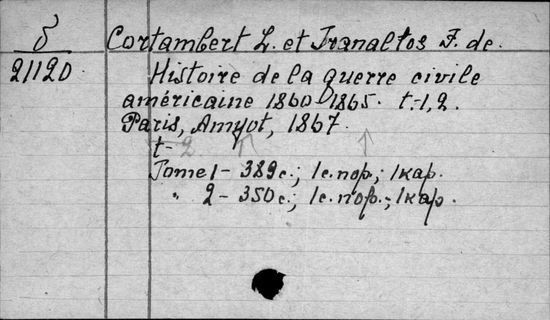 δ Cortambert L. et Tranaltos F. de.
21120 Histoire de la guerre civile
américaine 1860-1865. t. 1, 2.
Paris, Amyot, 1867.
t-2
Tome 1 - 389 с.; 1 с. пор.; 1 кар.
" 2 - 350 с.; 1 с. пор.; 1 кар.